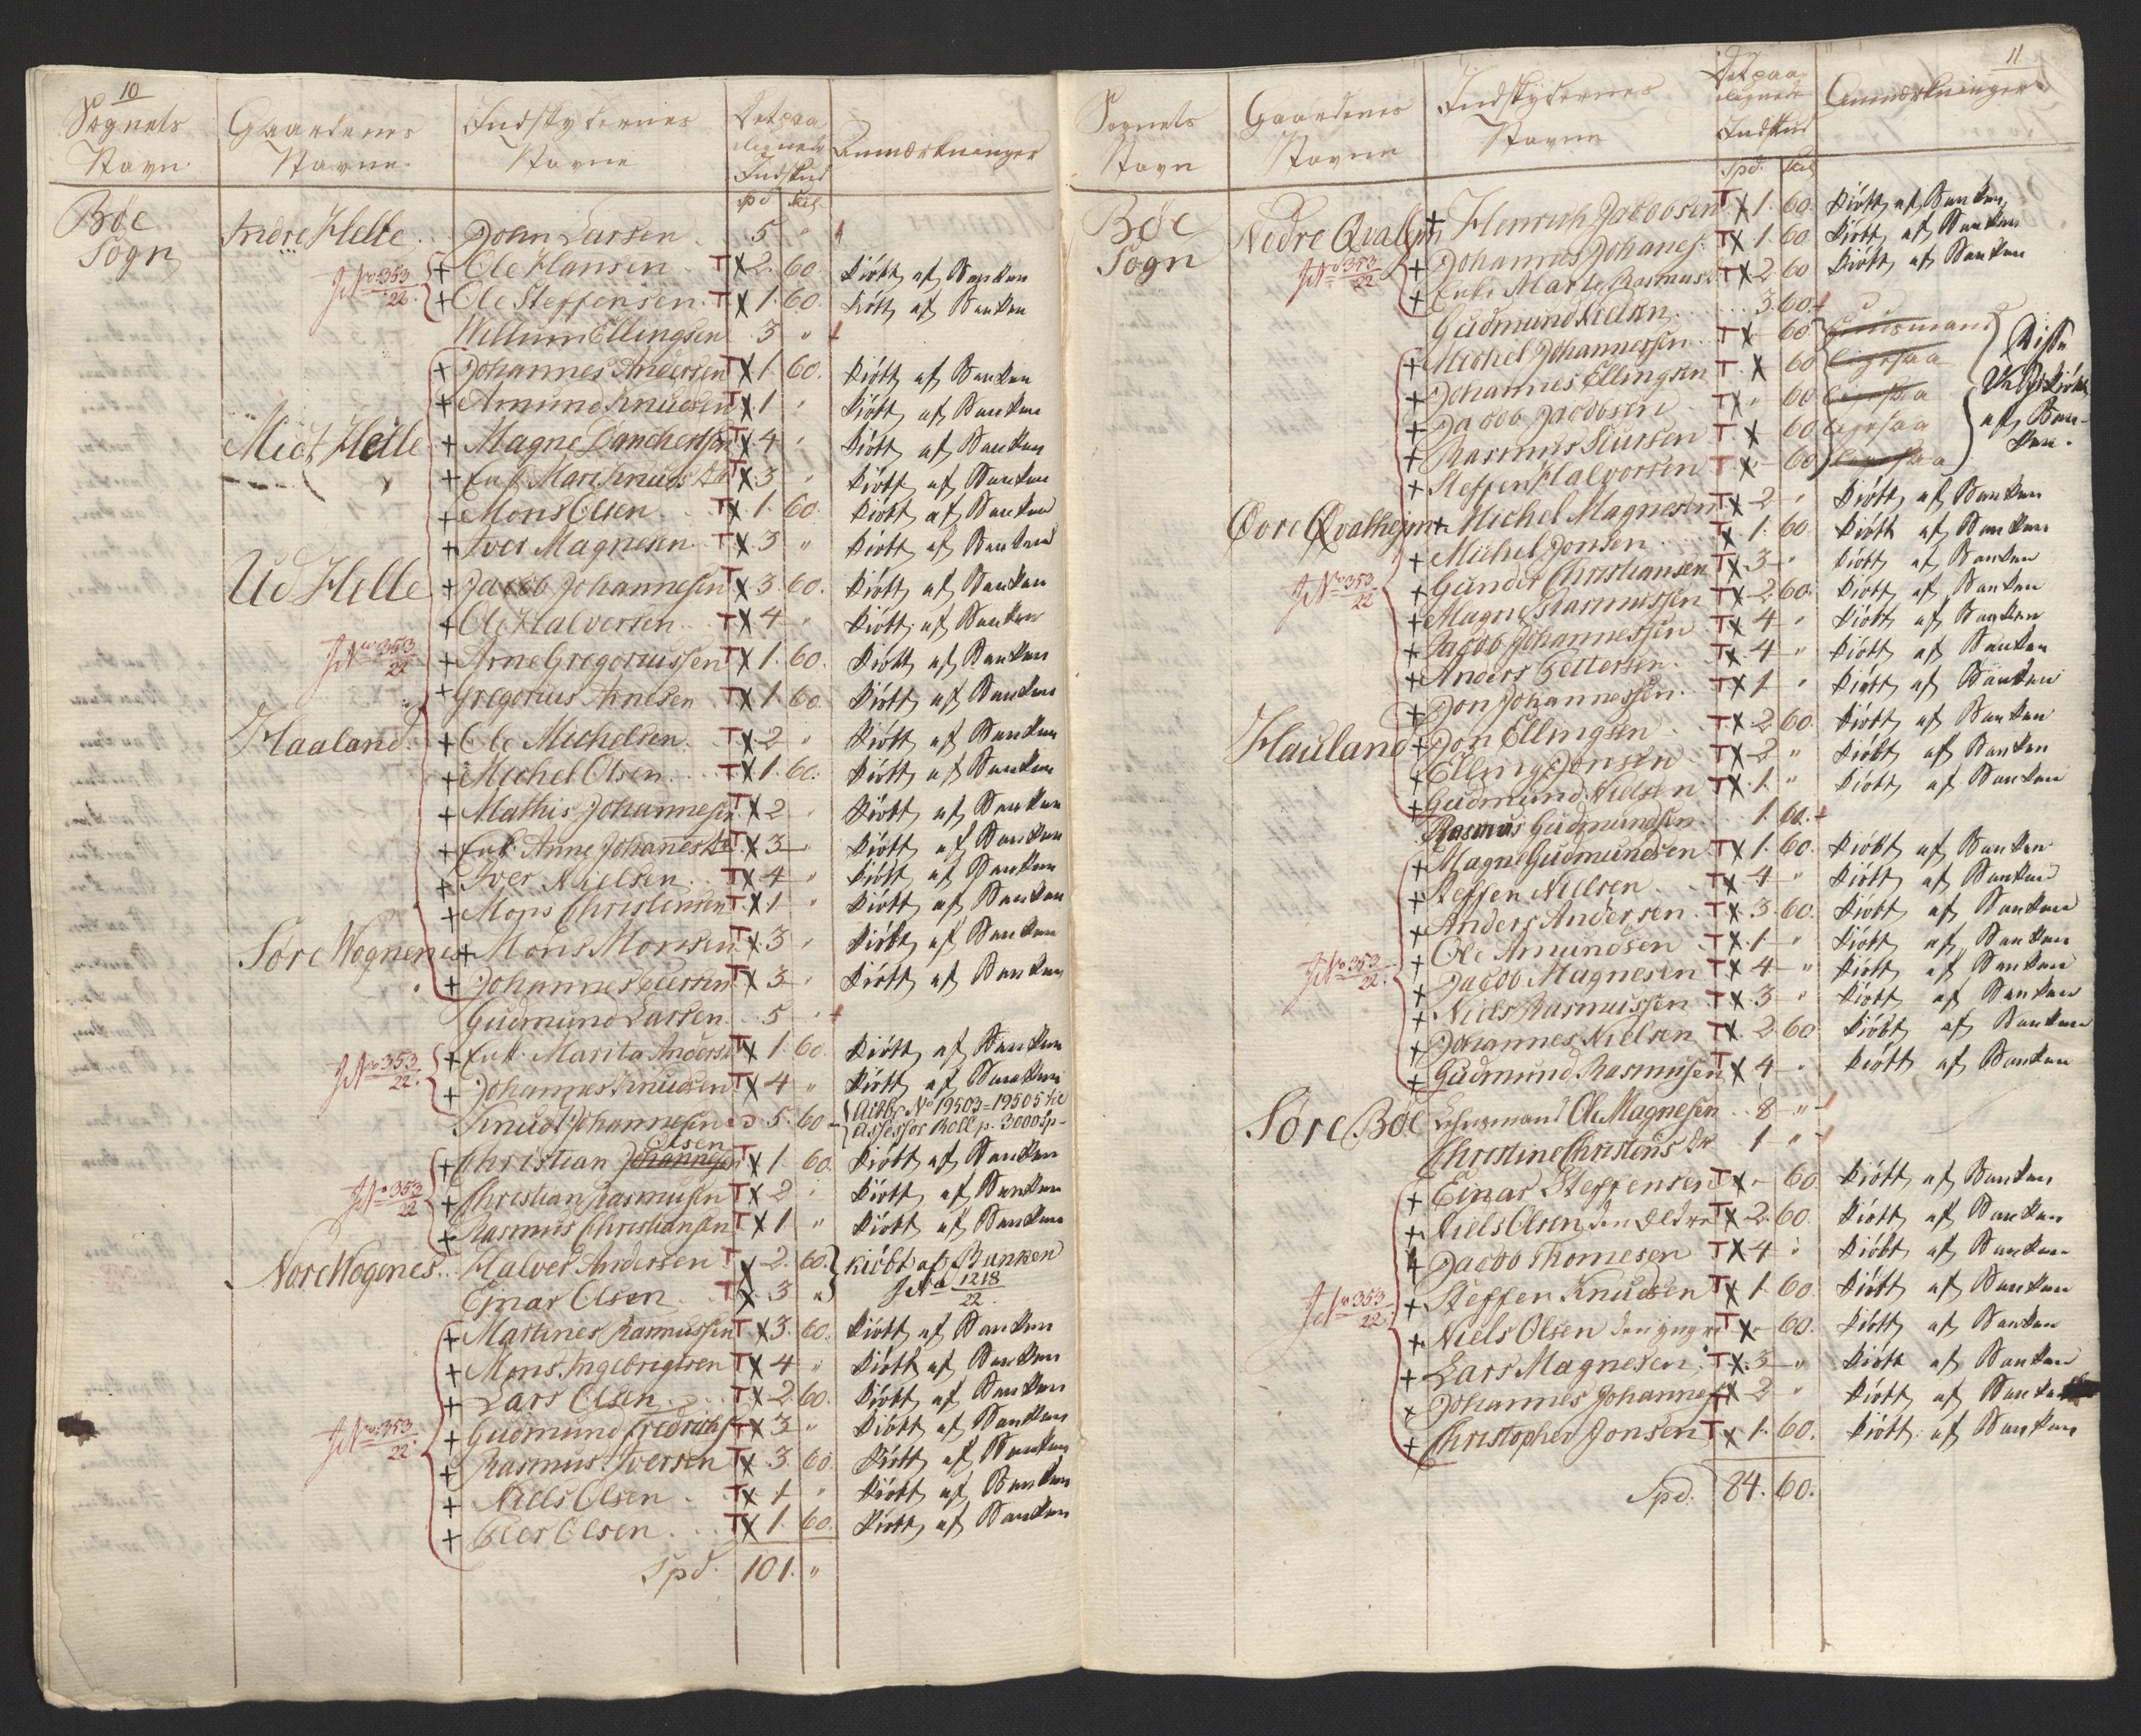 10
Sognets Navn
Gaardenes Navne
Indskydernes Navne
Det paalignede Indskud
Anmærkninger
Spd Skil
Bøe Sogn
Indre Helle John Larsen 5 "
JNo 353/22
+ Ole Hansen T X 2. 60. kiøbt af Banken
+ Ole Steffensen T X 1. 60. kiøbt af Banken
Willum Ellingsen 3 "
+ Johannes Andersen T X 1. 60. kiøbt af Banken
+ Amund Knudsen T X 1 " kiøbt af Banken
Midt Helle + Magne Danchertsen T X 4 " kiøbt af Banken
+ Enk. Mari Knuds Dr T X 3 " kiøbt af Banken
+ Mons Olsen T X 1. 60. kiøbt af Banken
+ Iver Magnesen T X 3 " kiøbt af Banken
Ud Helle + Jacob Johannesen T X 3. 60. kiøbt af Banken
+ Ole Halversen T X 4 " kiøbt af Banken
JNo 353/22
+ Arne Gregoriussen T X 1. 60. kiøbt af Banken
+ Gregorius Arnesen T X 1. 60 kiøbt af Banken
Haaland + Ole Michelsen T X 2 " kiøbt af Banken
+ Michel Olsen T X 1. 60. kiøbt af Banken
+ Mathis Johannesen T X 2 " kiøbt af Banken
+ Enk. Anne Johanes Dr T X 3 " kiøbt af Banken
+ Iver Nielsen T X 4 " kiøbt af Banken
+ Mons Christensen T X 1 " kiøbt af Banken
Søre Wognenes + Mons Monsen T X 3 " kiøbt af Banken
+ Johannes Larsen T X 3 " kiøbt af Banken
Gudmund Larsen 5 " +
JNo 353/22
+ Enk. Marita Anders T X 1. 60. kiøbt af Banken
+ Johannes Knudsen T X 4 " kiøbt af Banken
Knudt Johannesen 5. 60 Actbr No 19503=19505 til
Assessor Roll p. 3000 Sp
Olsen
+ Christian Johannesen T X 1. 60. kiøbt af Banken
JNo 353/22
+ Christian Rasmusen T X 2 " kiøbt af Banken
+ Rasmus Christiansen T X 1 " kiøbt af Banken
Nore Wogenes Halver Andersen T X 2. 60. kiøbt af Banken
Ejnar Olsen T X 3 " JNo 1218/22
+ Martines Rasmussen T X 3. 60. kiøbt af Banken
+ Mons Ingebrigtsen T X 4 " kiøbt af Banken
+ Lars Olsen T X 2. 60. kiøbt af Banken
JNo 353/22
+ Gudmund Fredrichs T X 3 " kiøbt af Banken
+ Rasmus Iversen T X 3. 60 kiøbt af Banken
+ Niels Olsen T X 1 " kiøbt af Banken
+ Peer Olsen T X 1. 60. kiøbt af Banken
Spd. 101. "
11
Sognets Navn
Gaardenes Navne
Indskydernes Navne
Det paalignede Indskud
Anmærkninger
Spd. Skil
Bøe Sogn
Nedre Qvalhejm + Henrich Jacobsen T X 1. 60. kiøbt af Banken
JNo 353/22
+ Johannes Johanes. T X 1. 60 kiøbt af Banken
+ Enke Marte Rasmus D T X 2. 60 kiøbt af Banken
Gudmund Nielsen 3. 60. +
+ Michel Johannessen T X 60 Huusmand
+ Johannes Ellingsen T X 60 ligesaa
+ Jacob Jacobsen T X 60 ligesaa
+ Rasmus Siursen T X 60 ligesaa
+ Steffen Halvorsen T X 60 ligesaa
Disse kiøbt af Banken.
Øvre Qvalhejm + Michel Magnesen T X 2 " kiøbt af Banken
+ Michel Jonsen T X 1. 60. kiøbt af Banken
JNo 353/22
+ Gunder Christiansen T X 3 " kiøbt af Banken
+ Magne Rasmussen T X 2. 60. kiøbt af Banken
+ Jacob Johannessen T X 4 " kiøbt af Banken
+ Anders Pettersen T X 4 " kiøbt af Banken
+ Jon Johannessen T X 1 " kiøbt af Banken
Hauland + Jon Ellingsen T X 2. 60 kiøbt af Banken
+ Elling Jonsen T X 2 " kiøbt af Banken
+ Gudmund Nielsen T X 1. " kiøbt af Banken
Rasmus Gudmundsen 1. 60. +
+ Magne Gudmundsen T X 1. 60. kiøbt af Banken
+ Steffen Nielsen T X 4 " kiøbt af Banken
+ Anders Andersen T X 3. 60. kiøbt af Banken
JNo 353/22
+ Ole Amundsen T X 1. " kiøbt af Banken
+ Jacob Magnesen T X 4 " kiøbt af Banken
+ Niels Rasmussen T X 3 " kiøbt af Banken
+ Johannes Nielsen T X 2. 60 kiøbt af Banken
+ Gudmund Rasmusen T X 4 " kiøbt af Banken
Søre Bøe Lehnsmand Ole Magnesen 8 "
Christine Christens Dr 1 "
+ Ejnar Steffensen T X " 60 kiøbt af Banken
+ Niels Olsen den Eldre T X 2. 60. kiøbt af Banken
+ Jacob Thomesen T X 4 " kiøbt af Banken
JNo 353/22
+ Steffen Knudsen T X 1. 60 kiøbt af Banken
+ Niels Olsen den yngre T X 60. kiøbt af Banken
+ Lars Magnesen T X 3 " kiøbt af Banken
+ Johannes Johannes T X 2 " kiøbt af Banken
+ Christopher Jonsen T X 1. 60. kiøbt af Banken
Spd. 84. 60.